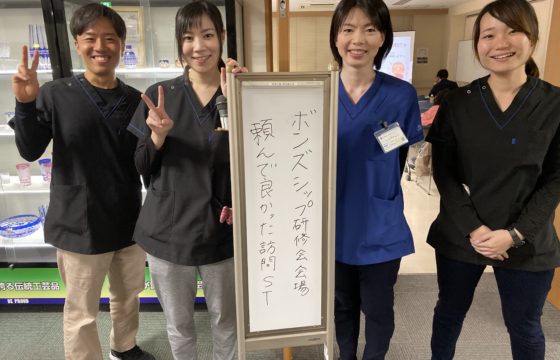 ボンズシップ研修会会場
頼んで良かった訪問ST
誇る伝統工芸品
BE PROUD